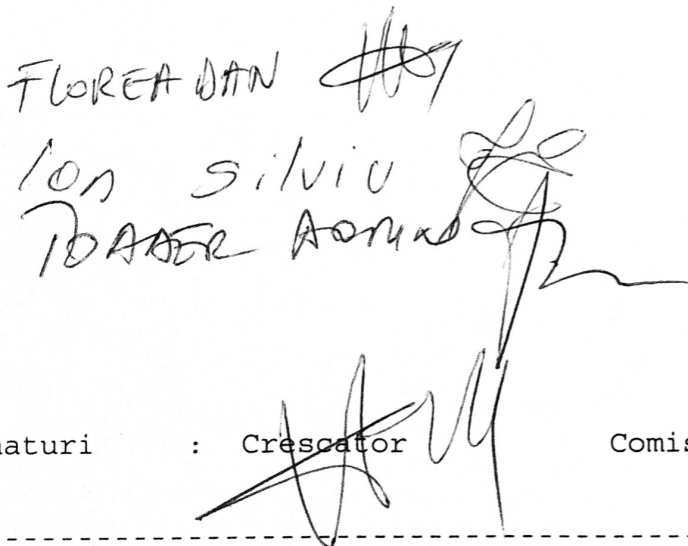 FLOREA DAN
Ion Silviu
TOADER
naturi : Crescator Comis